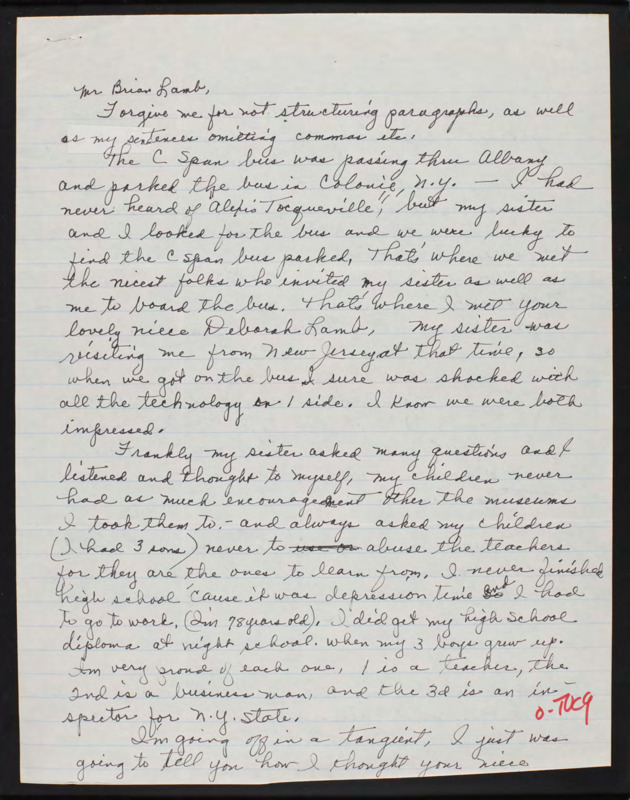 Mr Brian Lamb,
Forgive me for not structuring paragraphs, as well
as my sentences omitting commas etc.
The C Span bus was passing thru Albany
and parked the bus in Colonie, N.Y. — I had
never heard of Alexis Tocqueville!, but my sister
and I looked for the bus and we were lucky to
find the C Span bus parked. That's where we met
the nicest folks who invited my sister as well as
me to board the bus. That's where I met your
lovely niece Deborah Lamb, my sister was
visiting me from New Jersey at that time, so
when we got on the bus I sure was shocked with
all the technology on 1 side. I know we were both
impressed.
Frankly my sister asked many questions and I
listened and thought to myself, my children never
had as much encouragement other the museums
I took them to, - and always asked my children
(I had 3 sons) never to use or abuse the teachers
for they are the ones to learn from. I never finished
high school 'cause it was depression time and I had
to go to work. (I'm 78 years old). I did get my high School
diploma at night school. when my 3 boys grew up.
Im very proud of each one, 1 is a teacher, the
2nd is a business man, and the 3d is an in-
spector for N.Y. State.
O-TOC9
I'm going off in a tangient, I just was
going to tell you how I thought your niece